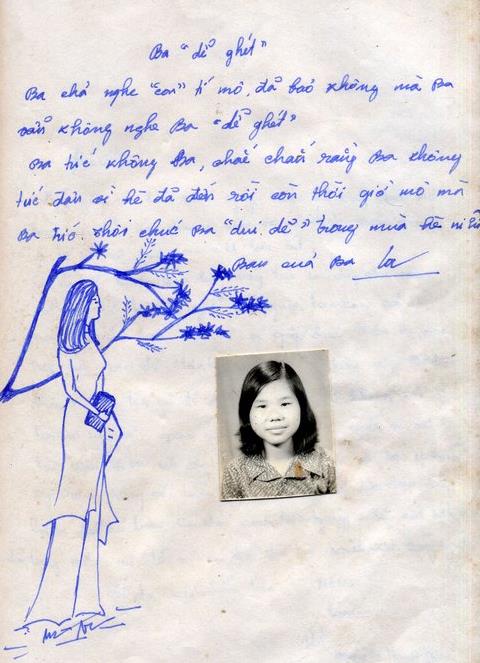 Ba "dễ ghét"
Ba chả nghe "con" tí mô, đã bảo không mà Ba
vẫn không nghe Ba "dễ ghét"
Ba tức không Ba, chắc chắn rằng Ba không
tức đâu vì hè đã đến rồi còn thời giờ mô mà
Ba tức. Thôi chúc Ba "dui dẻ" trong mùa hè ni
Bạn của Ba